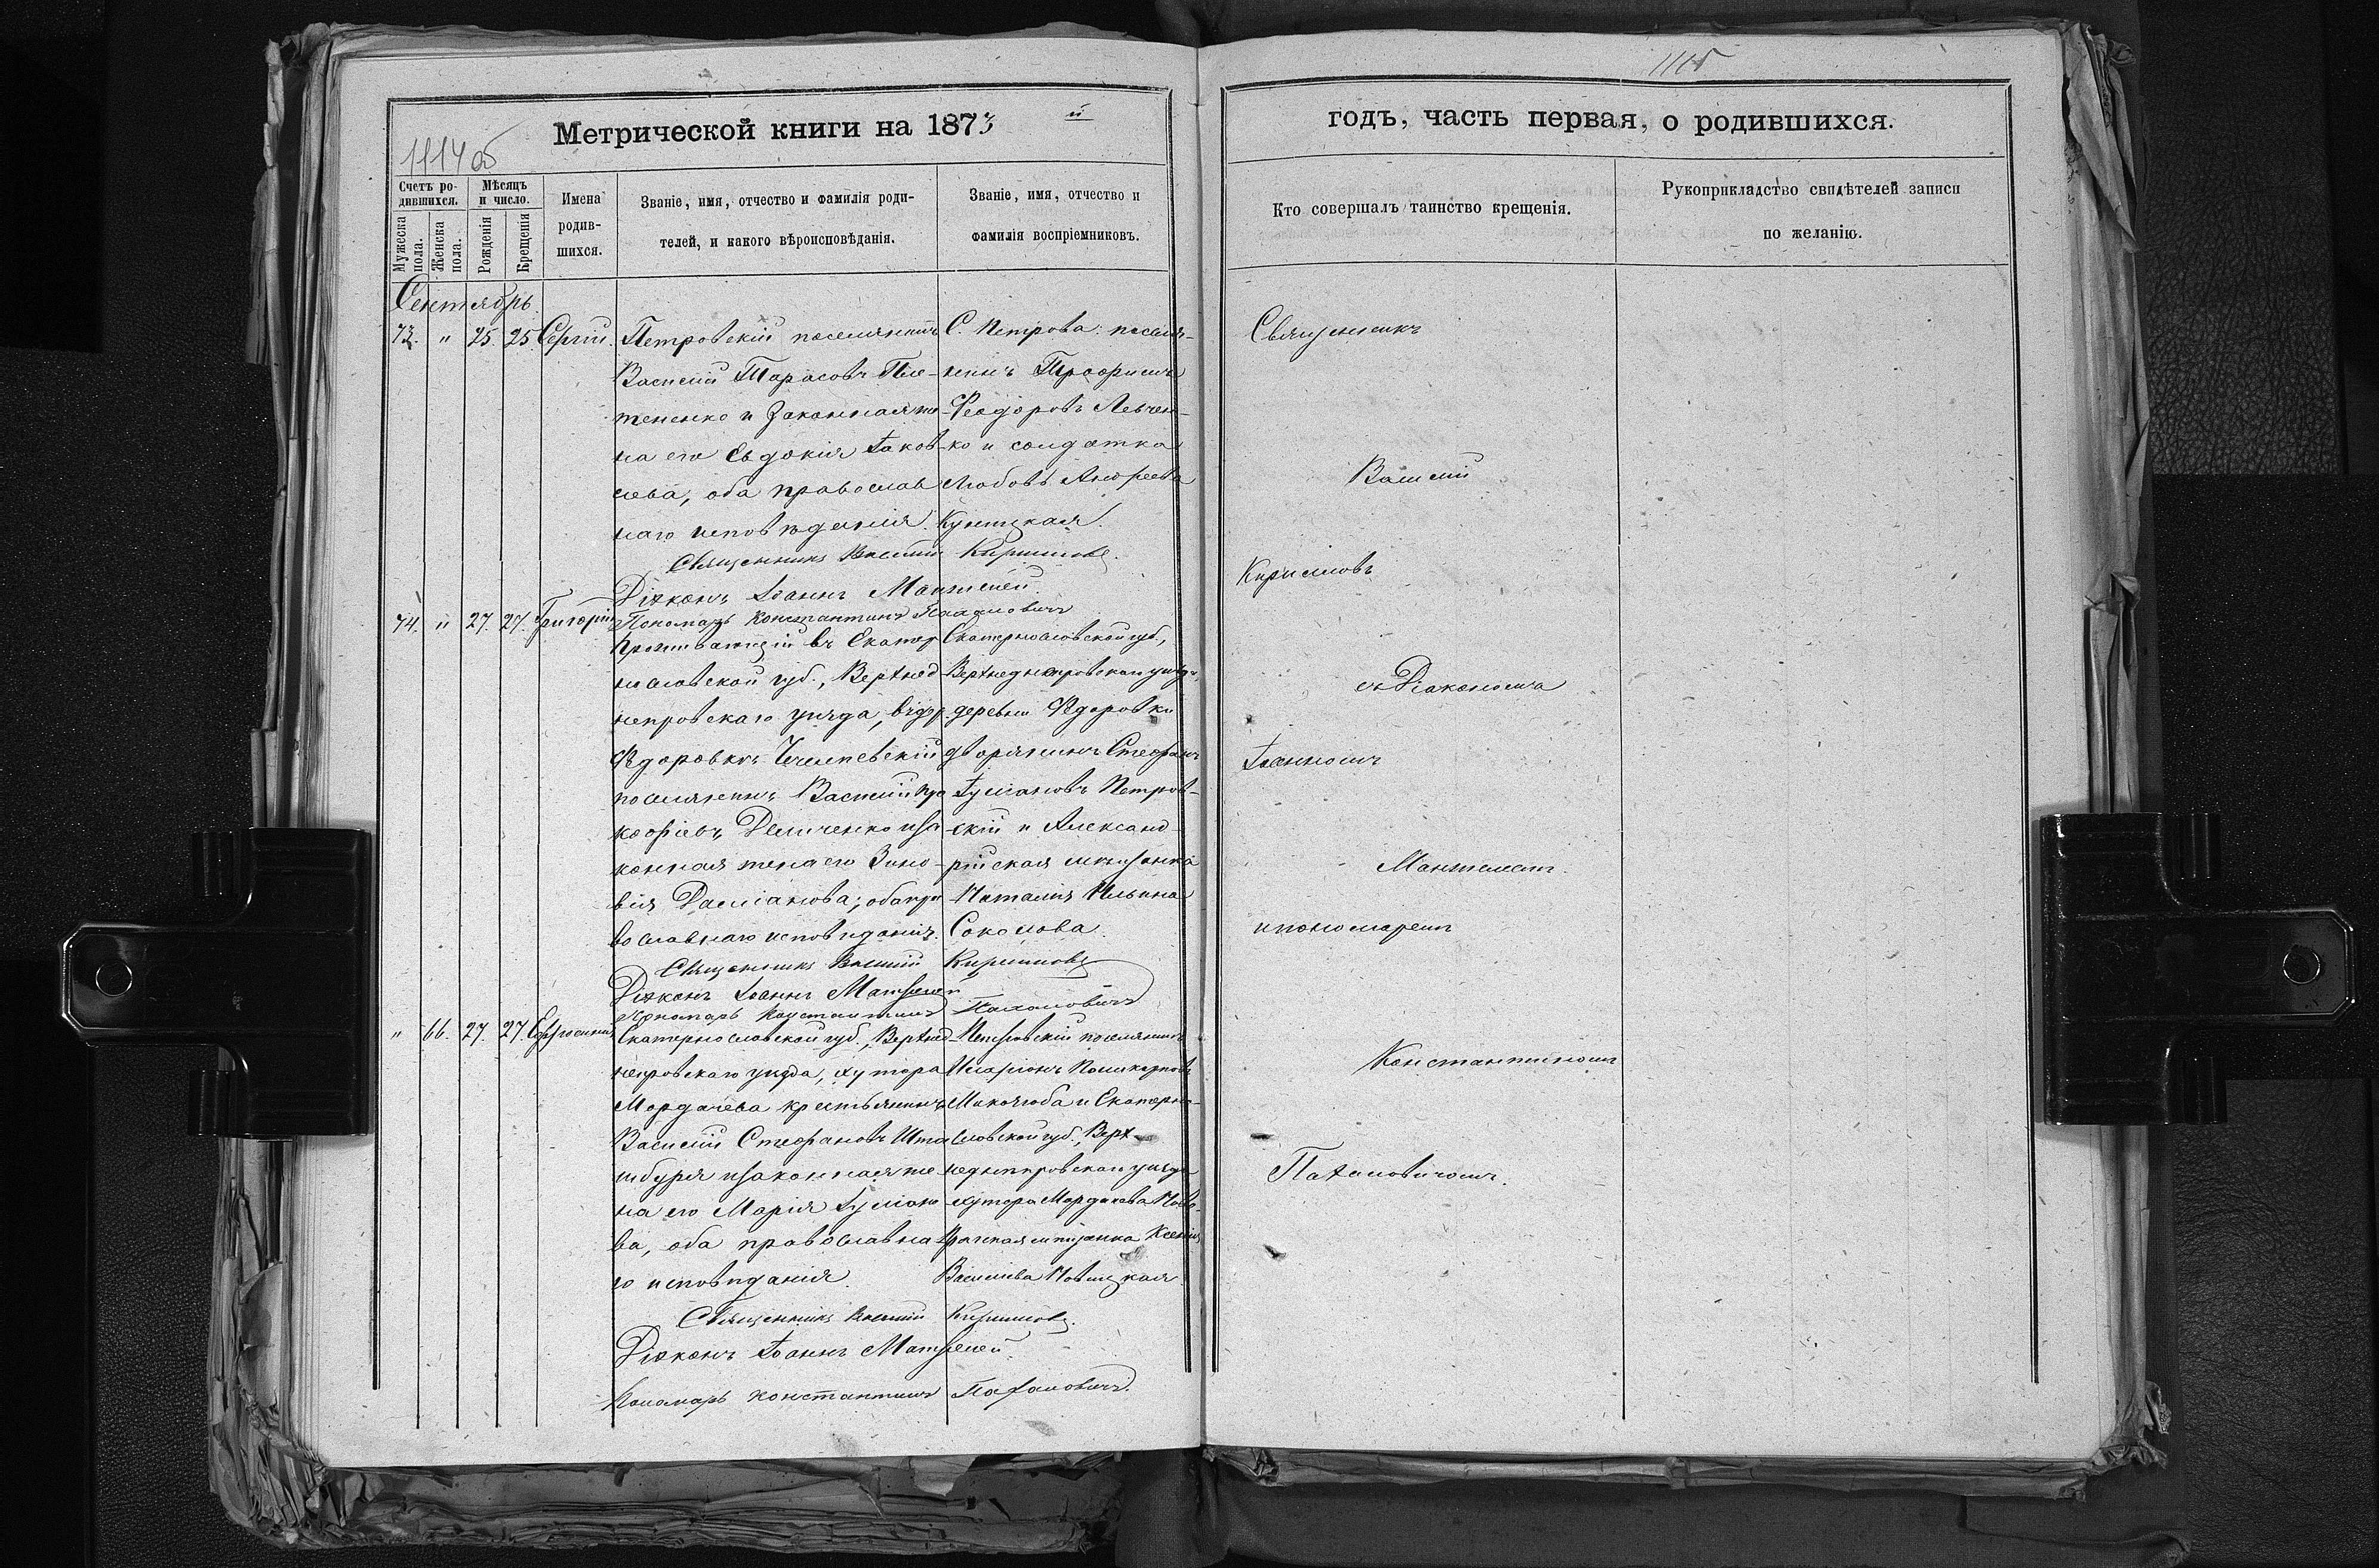 1114 об
Метрической книги на 1873 й
Счетъ ро-
дившихся.
Мужеска пола.
Женска пола.
Мѣсяцъ
и число.
Рожденія
Крещенія
Имена
родив-
шихся.
Званіе, имя, отчество и фамилія роди-
телей, и какого вѣроисповѣданія.
Званіе, имя, отчество и
фамилія воспріемниковъ.
Сентябрь
73. " 25. 25 Сергій.
Петровскій поселянинъ
Василій Тарасовъ Пле-
тененко и законная же-
на его Евдокія Іаков-
лева, оба православ
наго исповѣданія.
С. Петрова: поселя-
нинъ Трофимъ
Феодоровъ Левчен-
ко и солдатка
Любовь Андреева
Куницкая.
Священникъ Василій Кирилловъ.
Діаконъ Іоаннъ Манжелей
Пономарь Константинъ
74. " 27. 27. Григорій
Проживающій въ Екатер
инославской губ., Верхнед
непровскаго уѣзда, въ дер.
Федоровкѣ
поселянинъ Василій Про
кофіевъ Демченко и за
конная жена его Зино-
вія Даміанова; оба пра
вославнаго исповѣданія.
Екатеринославской губ.,
Верхнеднепровскаго уѣзда,
деревни Федоровки
дворянинъ Стефанъ
Іуліановъ Петров-
скій и Александ-
рійская мѣщанка
Наталія Ильина
Соколова.
Священникъ Василій Кирилловъ
Діаконъ Іоаннъ Манжелей
Пономарь Константинъ
" 66. 27. 27. Евфросинія
Екатеринославской губ., Верхнед
непровскаго уѣзда, хутора
Мордачева крестьянинъ
Василій Стефановъ
и законная же
на его Марія Іуліано
ва, оба православна
го исповѣданія.
Петровскій поселянинъ
Иларіонъ Поликарповъ
и Екатерино-
славской губ., Верх-
неднепровскаго уѣзда
хутора Мордачева
мѣщанка Ксенія
Василіева Новицкая
Священникъ Василій Кирилловъ.
Діаконъ Іоаннъ Манжелей.
Пономарь Константинъ Пахаловичъ.
1115
годъ, часть первая, о родившихся.
Кто совершалъ таинство крещенія.
Рукоприкладство свидѣтелей записи
по желанію.
Священникъ
Василій
Кирилловъ
съ Діакономъ
Іоанномъ
Манжелеемъ.
и пономаремъ
Константиномъ
Пахаловичемъ.